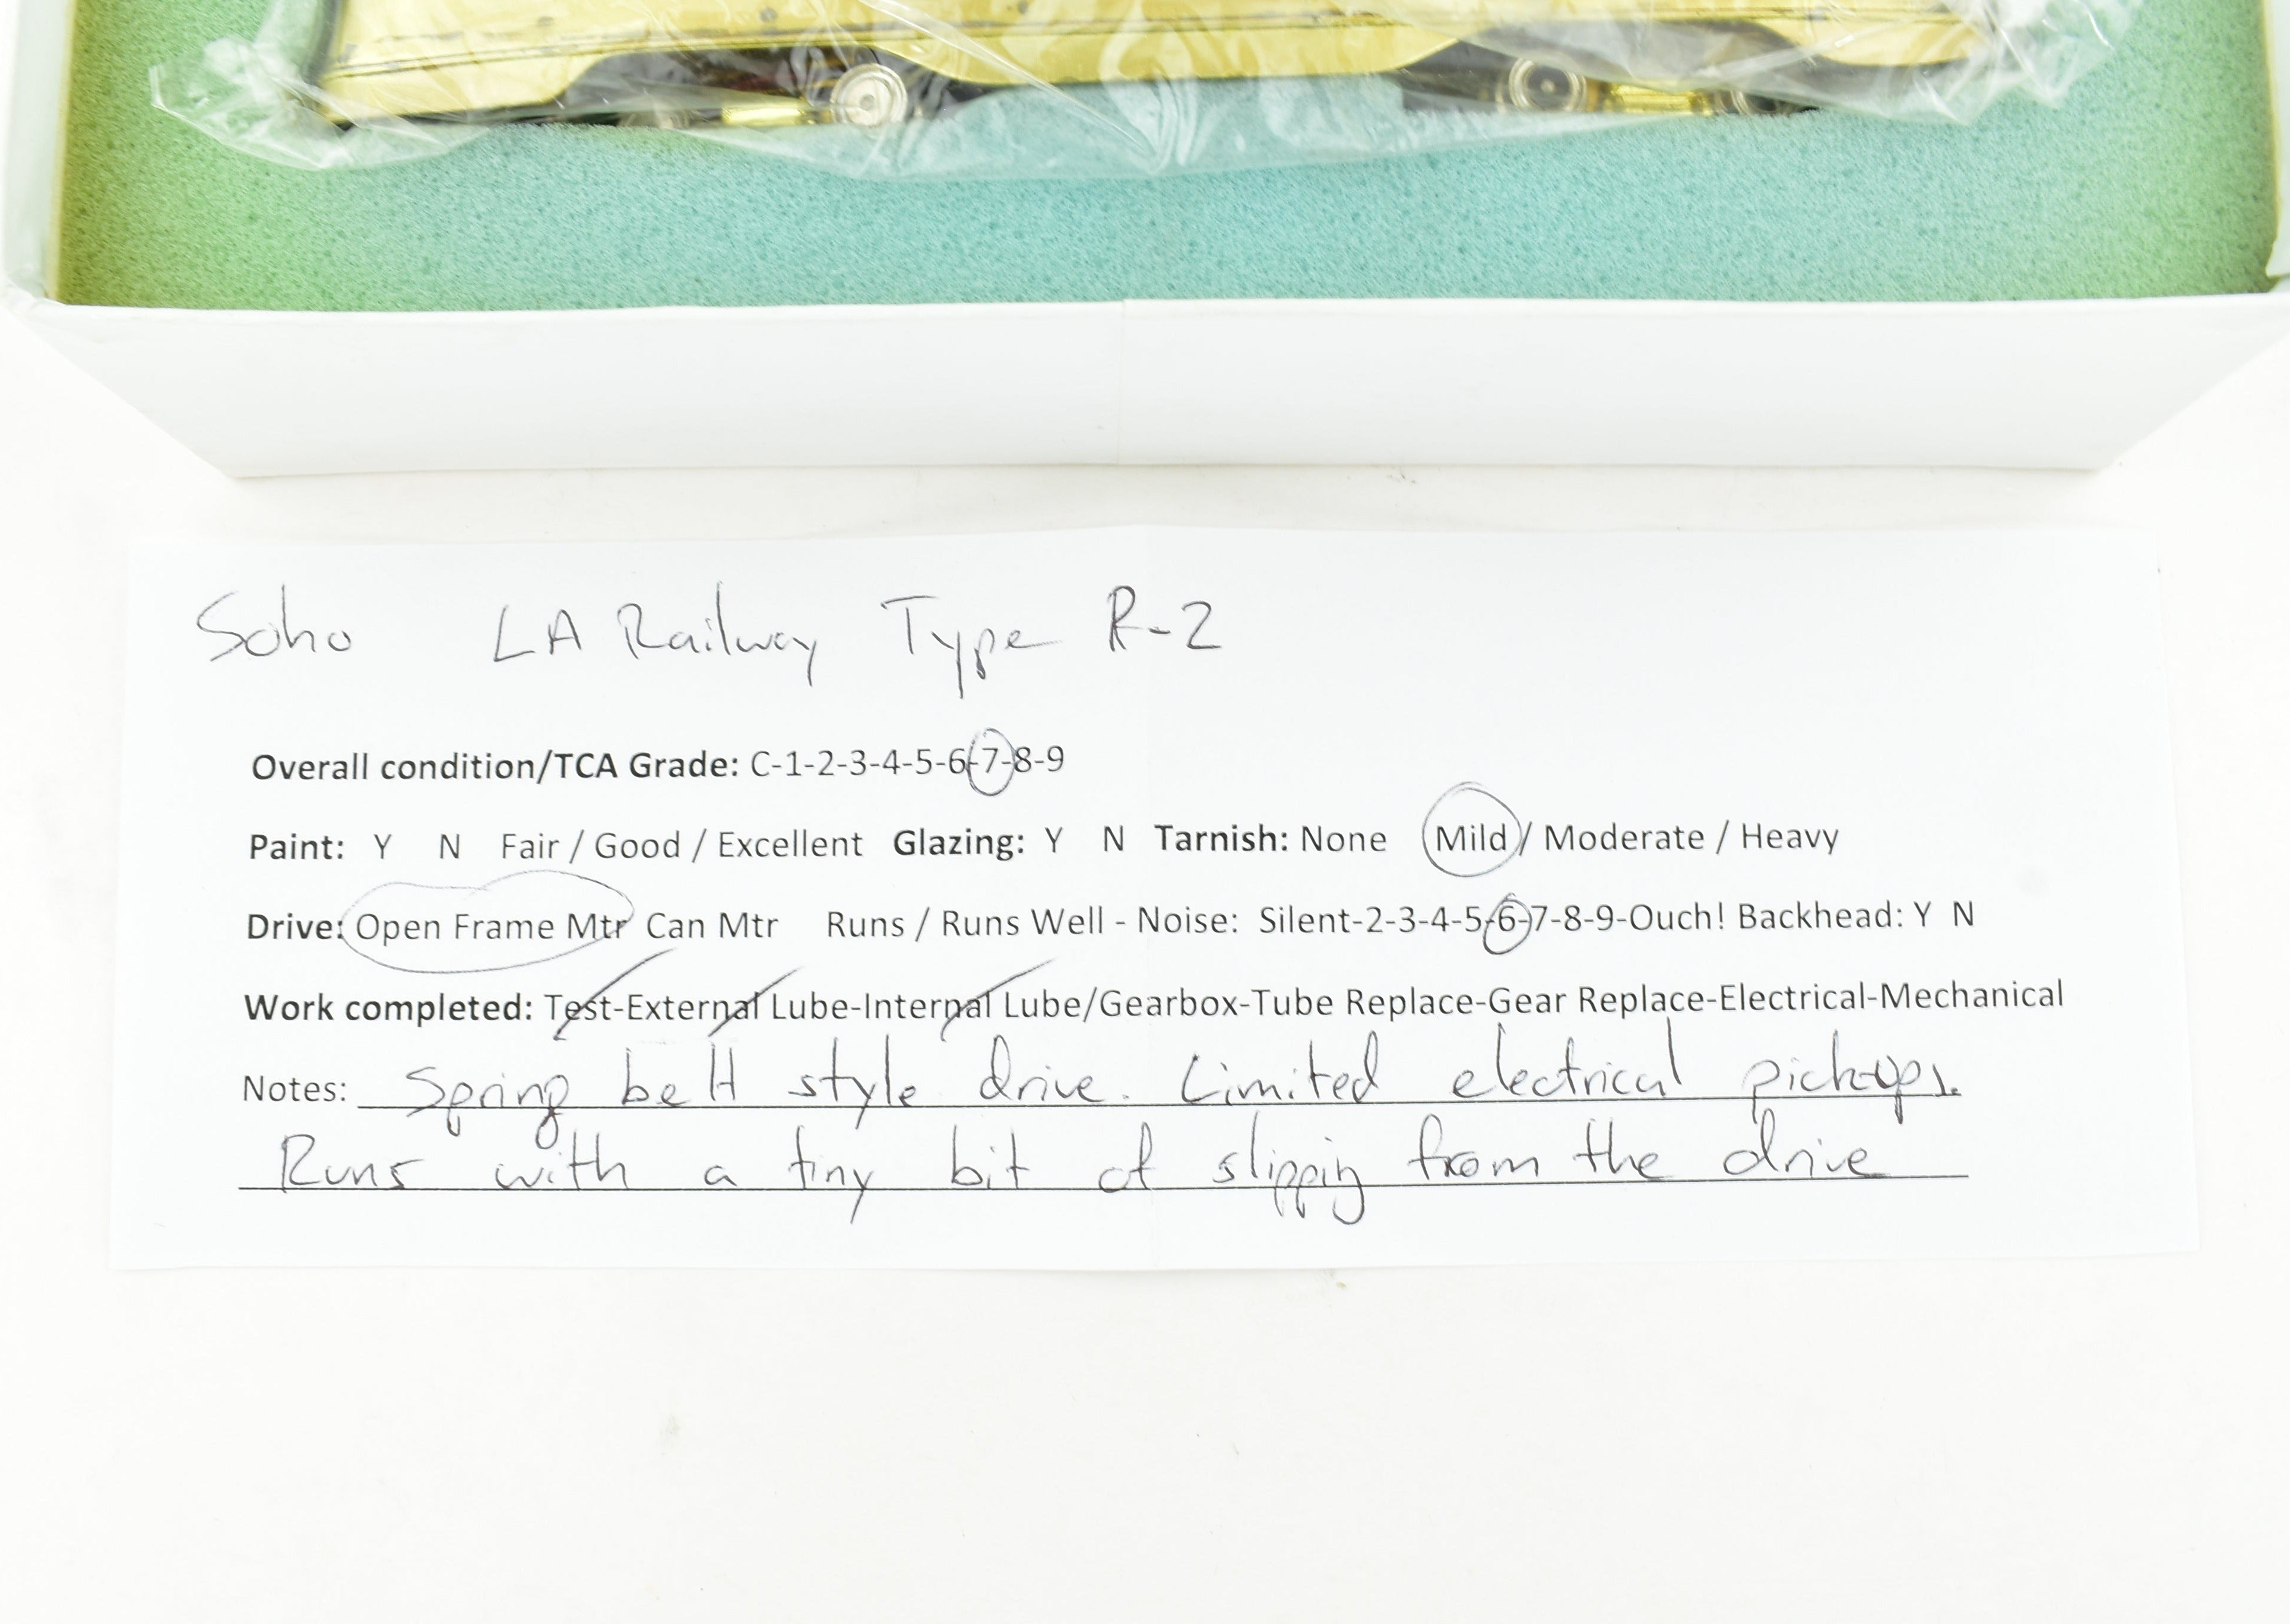 Soho LA Railway Type R-2
Overall condition/TCA Grade: C-1-2-3-4-5-6-7-8-9
Paint: Y N Fair / Good / Excellent Glazing: Y N Tarnish: None Mild / Moderate / Heavy
Drive: Open Frame Mtr Can Mtr Runs / Runs Well - Noise: Silent-2-3-4-5-6-7-8-9-Ouch! Backhead: Y N
Work completed: Test-External Lube-Internal Lube/Gearbox-Tube Replace-Gear Replace-Electrical-Mechanical
Notes: Spring belt style drive. Limited electrical pickups.
Runs with a tiny bit of slippig from the drive